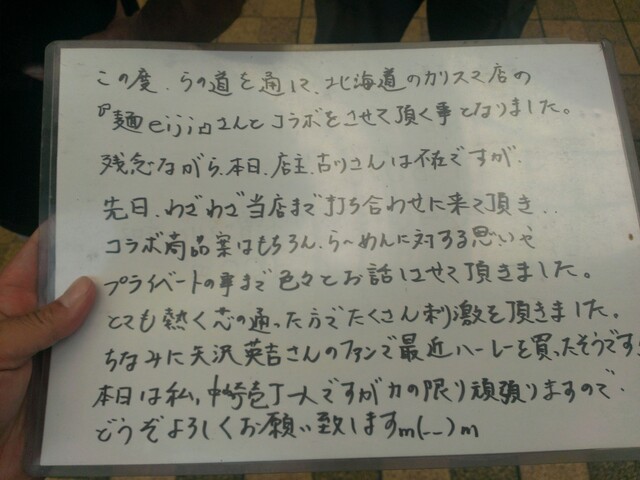 この度、らの道を通して、北海道のカリスマ店の
『麺eiji』さんとコラボをさせて頂く事となりました。
残念ながら、本日、店主、古川さんは不在ですが、
先日、わざわざ当店まで打ち合わせに来て頂き、、
コラボ商品案はもちろん、ら〜めんに対する思いや
プライベートの事まで色々とお話しさせて頂きました。
とても熱く芯の通った方でたくさん刺激を頂きました。
ちなみに矢沢英吉さんのファンで最近ハーレーを買ったそうです!
本日は私、中崎壱丁一人ですが力の限り頑張りますので、
どうぞよろしくお願い致しますm(__)m